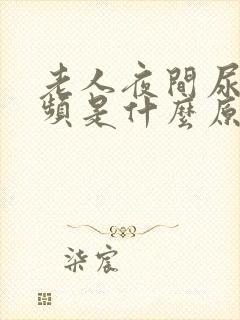 老人夜間尿
頻是什麼原
柒宸